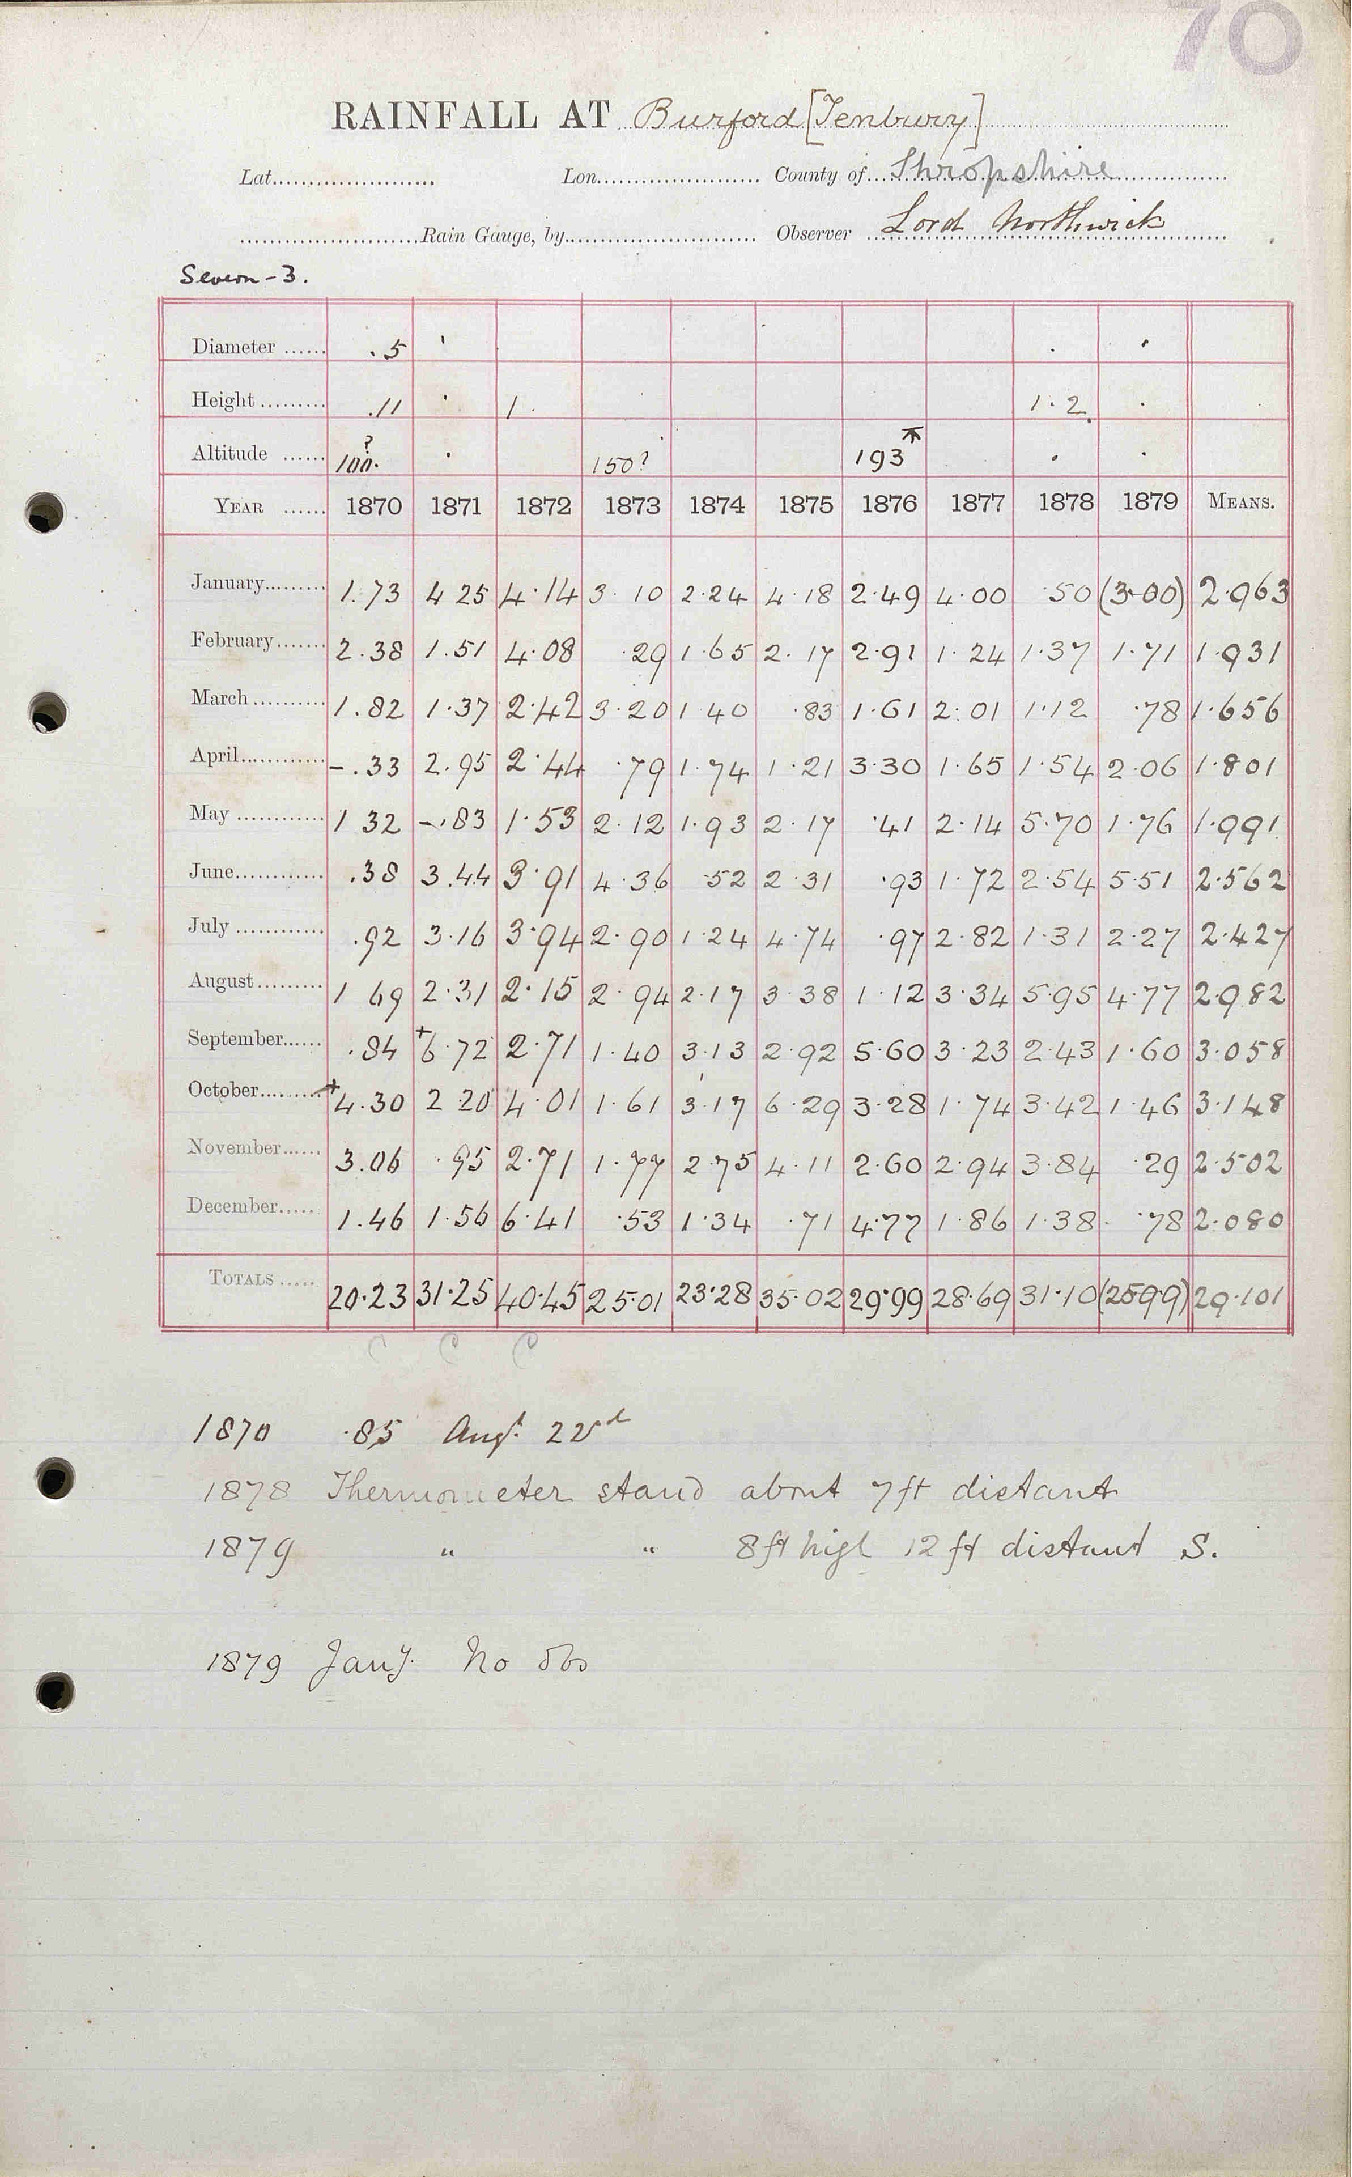 70
RAINFALL AT Burford [Tenbury]
Lat...................... Lon...................... County of...Shropshire
........................Rain Gauge, by.......................... Observer Lord Northwick
Severn - 3.
Diameter ...... .5
Height ......... .11 1 1.2
Altitude ...... 100.? 150? 193
YEAR ...... 1870 1871 1872 1873 1874 1875 1876 1877 1878 1879 MEANS.
January......... 1.73 4 25 4.14 3.10 2.24 4.18 2.49 4.00 .50 (3.00) 2.963
February....... 2.38 1.51 4.08 .29 1.65 2.17 2.91 1.24 1.37 1.71 1.931
March........... 1.82 1.37 2.42 3.20 1.40 .83 1.61 2.01 1.12 .78 1.656
April............. -.33 2.95 2.44 .79 1.74 1.21 3.30 1.65 1.54 2.06 1.801
May ............. 1 32 -.83 1.53 2.12 1.93 2.17 .41 2.14 5.70 1.76 1.991
June............. .38 3.44 3.91 4.36 .52 2.31 .93 1.72 2.54 5.51 2.562
July ............. .92 3.16 3.94 2.90 1.24 4.74 .97 2.82 1.31 2.27 2.427
August.......... 1 69 2.31 2.15 2.94 2.17 3.38 1.12 3.34 5.95 4.77 2.982
September...... .84 +6.72 2.71 1.40 3.13 2.92 5.60 3.23 2.43 1.60 3.058
October......... +4.30 2 20 4.01 1.61 3.17 6.29 3.28 1.74 3.42 1.46 3.148
November...... 3.06 .95 2.71 1.77 2.75 4.11 2.60 2.94 3.84 .29 2.502
December...... 1.46 1.56 6.41 .53 1.34 .71 4.77 1.86 1.38 .78 2.080
TOTALS ...... 20.23 31.25 40.45 25.01 23.28 35.02 29.99 28.69 31.10 (25.99) 29.101
C C C
1870 .85 Augt. 22nd
1878 Thermometer stand about 7 ft distant
1879 " " 8 ft high 12 ft distant S.
1879 Jany. No obs